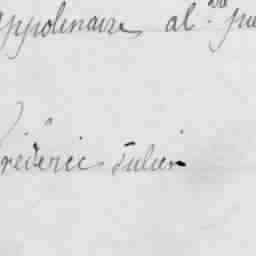 appolinaire al
Frédéric Julien